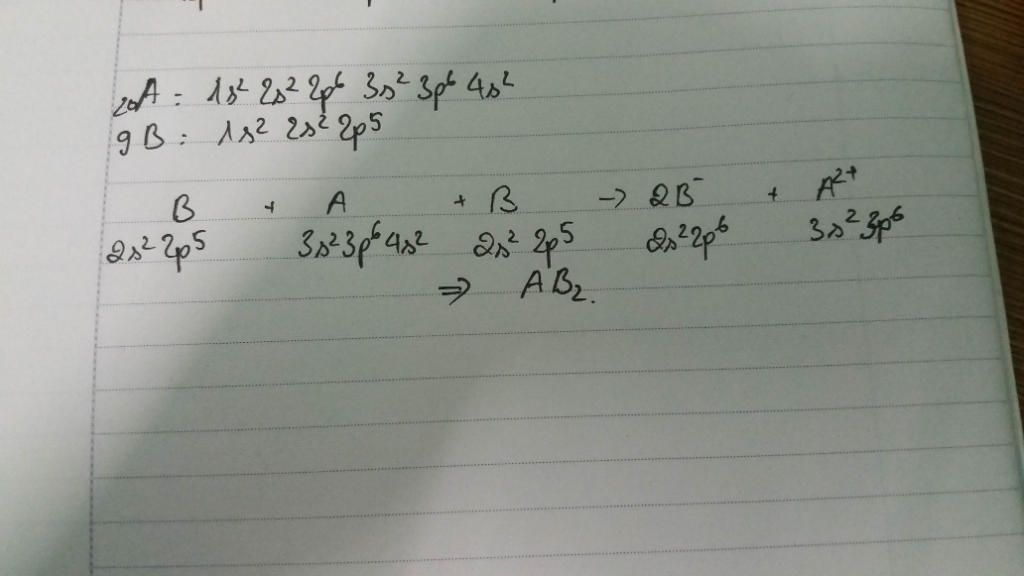 ₂₀A : 1s² 2s² 2p⁶ 3s² 3p⁶ 4s²
₉B : 1s² 2s² 2p⁵
B + A + B → 2B⁻ + A²⁺
2s² 2p⁵ 3s² 3p⁶ 4s² 2s² 2p⁵ 2s² 2p⁶ 3s² 3p⁶
⇒ AB₂.